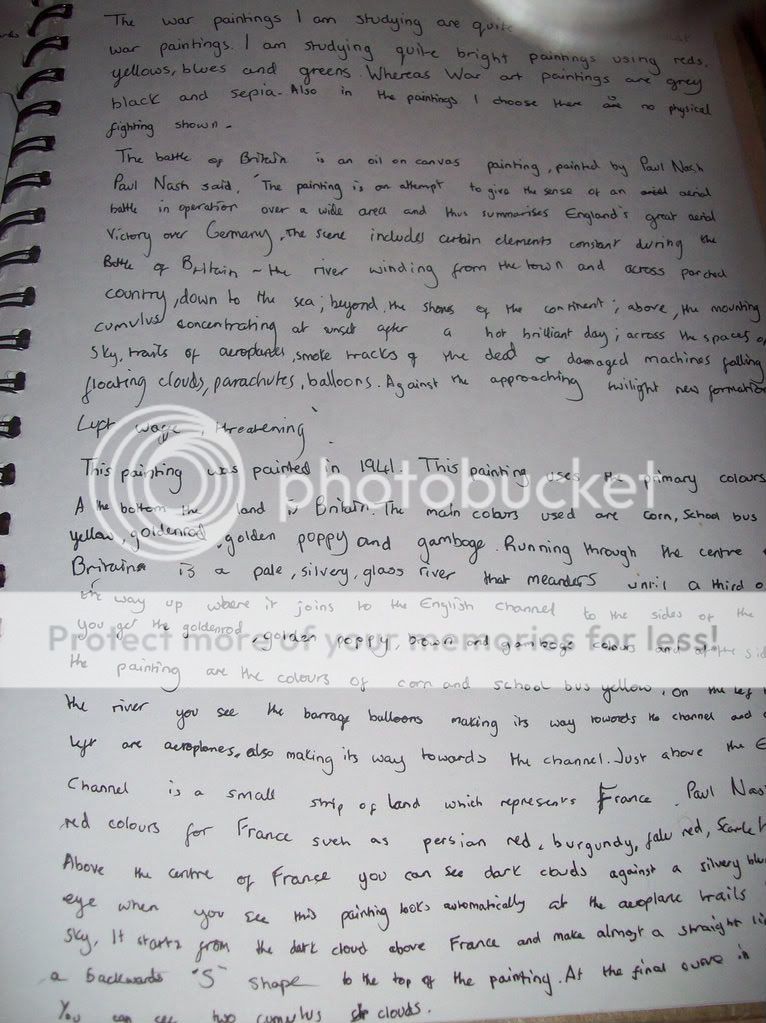 The war paintings I am studying are quite
war paintings. I am studying quite bright paintings using reds,
yellows, blues and greens. Whereas War art paintings are grey
black and sepia. Also in the paintings I choose there is no physical
fighting shown.
The battle of Britain is an oil on canvas painting, painted by Paul Nash
Paul Nash said, 'The painting is an attempt to give the sense of an aerial
battle in operation over a wide area and thus summarises England's great aerial
victory over Germany, The scene includes certain elements constant during the
Battle of Britain - the river winding from the town and across parched
country, down to the sea; beyond, the shores of the continent; above, the mounting
cumulus concentrating at sunset after a hot brilliant day; across the spaces of
sky, trails of aeroplanes, smoke tracks of the dead or damaged machines falling
floating clouds, parachutes, balloons. Against the approaching twilight new formation
Luft wage, threatening'
This painting was painted in 1941. This painting uses the primary colours
A the bottom the land is Britain. The main colours used are corn, School bus
yellow, goldenrod, golden poppy and gamboge. Running through the centre
Britain is a pale, silvery, glass river that meanders until a third o
the way up where it joins to the English channel to the sides of the
you get the goldenrod, golden poppy, brown and gamboge colours and at the sid
the painting are the colours of corn and school bus yellow, on the left
the river you see the barrage balloons making its way towards the channel and
left are aeroplanes, also making its way towards the channel. Just above the E
Channel is a small strip of land which represents France. Paul Nas
red colours for France such as persian red, burgundy, falu red, Scarlet
Above the centre of France you can see dark clouds against a silvery blu
eye when you see this painting looks automatically at the aeroplane trails
sky. It starts from the dark cloud above France and make almost a straight li
a backwards "S" shape to the top of the painting. At the final curve in
You can see two cumulus clouds.
photobucket
Protect more of your memories for less!